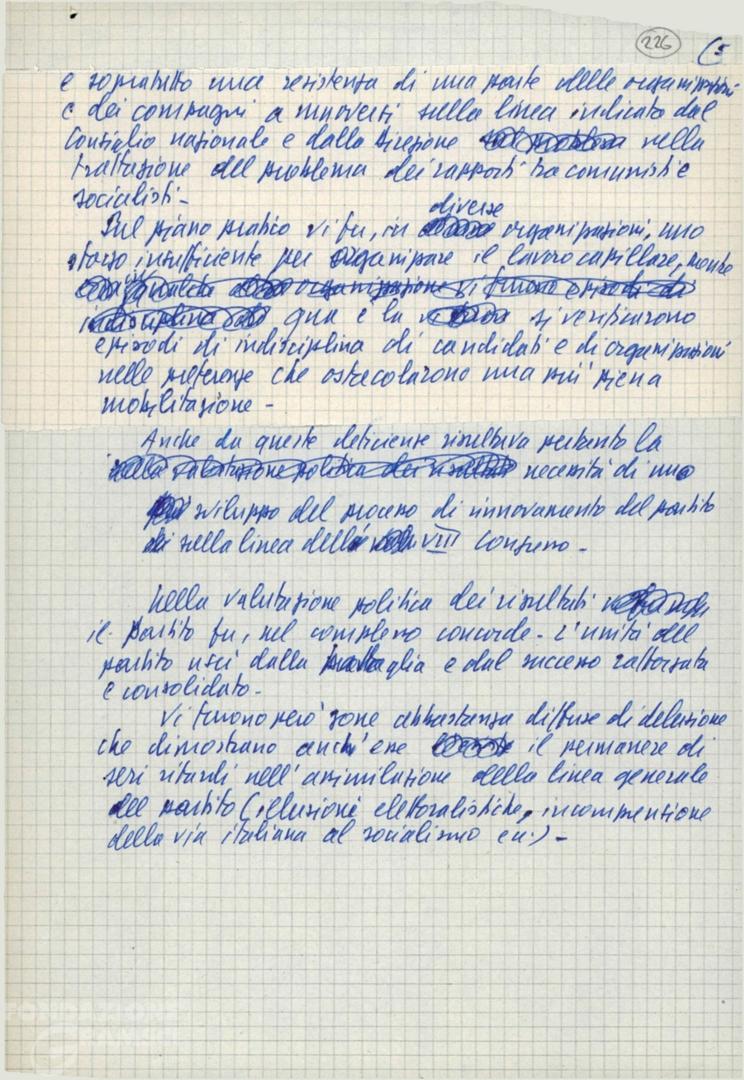 226 (5
e sopratutto una resistenza di una parte delle organizzazioni
e dei compagni a muoversi sulla linea indicata dal
Consiglio nazionale e dalla Direzione nella
trattazione del problema dei rapporti tra comunisti e
socialisti -
diverse
Sul piano pratico vi fu, in organizzazioni, uno
sforzo insufficiente per organizzare il lavoro capillare, mentre
qualche organizzazione vi furono episodi di
indisciplina qua e la si verificarono
episodi di indisciplina di candidati e di organizzazioni
nelle preferenze che ostacolarono una più piena
mobilitazione -
Anche da queste deficienze risultava pertanto la
nella valutazione politica dei risultati necessità di uno
sviluppo del processo di rinnovamento del partito
sulla linea dell' VIII Congresso -
Nella valutazione politica dei risultati
il partito fu, nel complesso concorde - L'unità del
partito uscì dalla battaglia e dal successo rafforzata
e consolidata -
Vi furono però zone abbastanza diffuse di delusione
che dimostrano anch'esse il permanere di
seri ritardi nell'assimilazione della linea generale
del partito (illusioni elettoralistiche, incomprensione
della via italiana al socialismo ecc.) -
FONDAZIONE
GRAMSCI